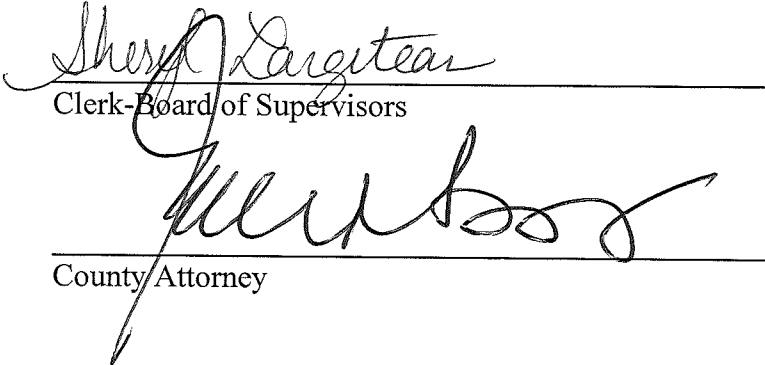 Sheryl Dargitean
Clerk-Board of Supervisors
County Attorney